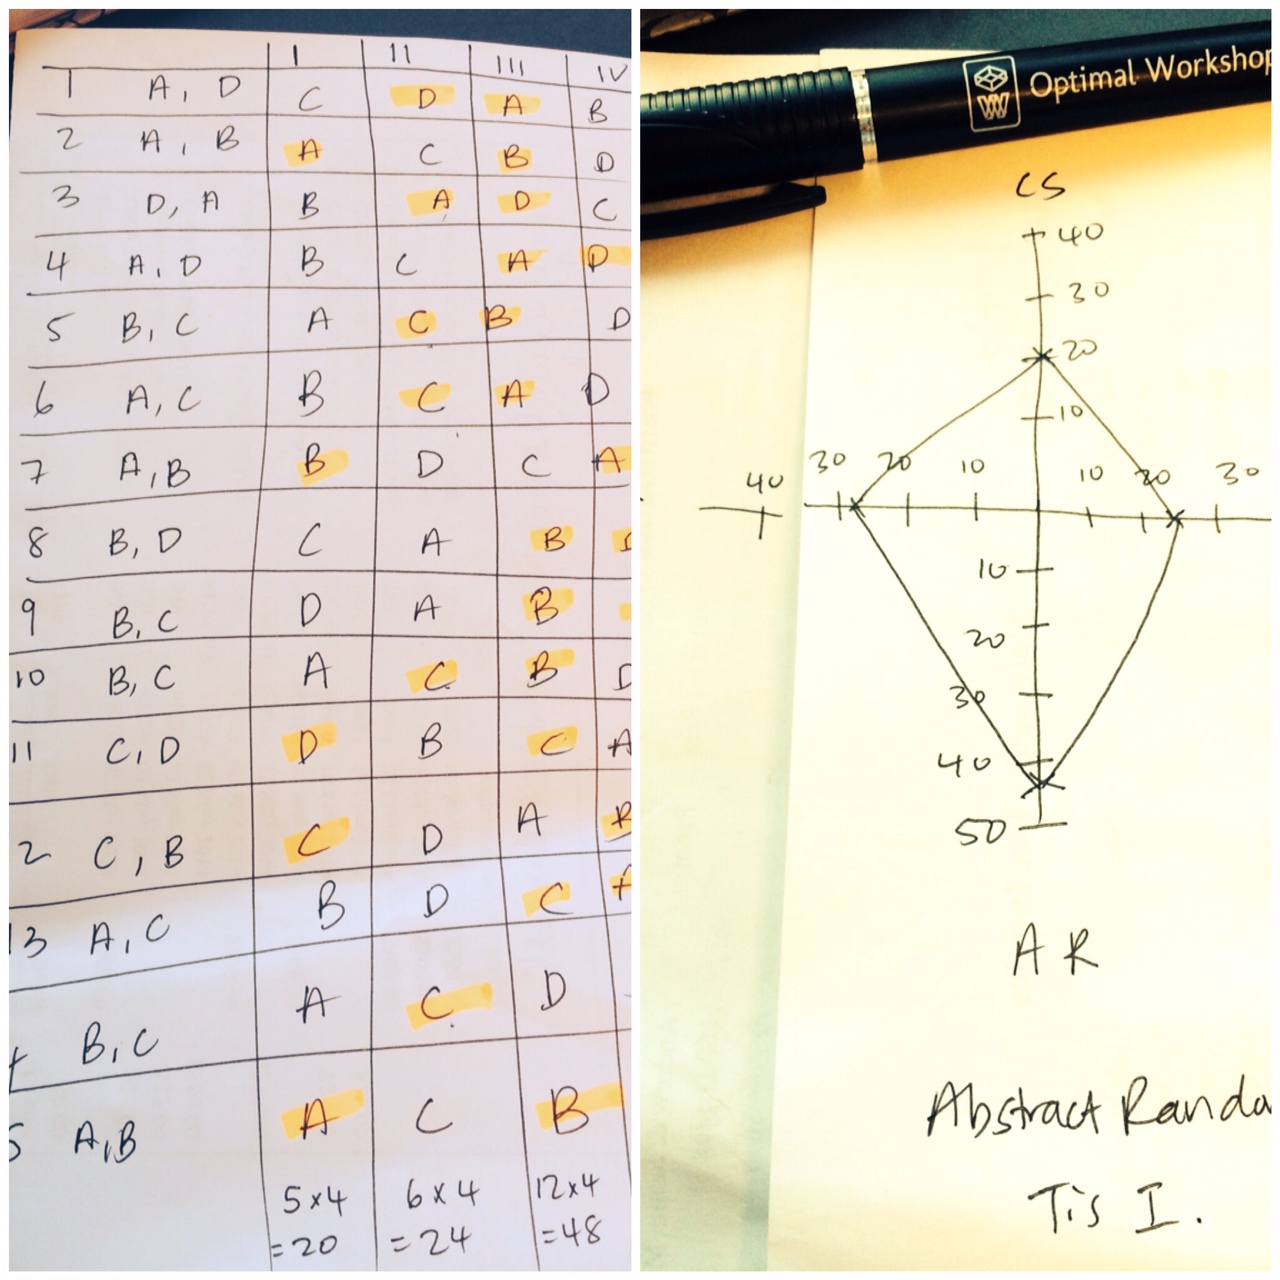 I II III IV
1 A, D C D A B
2 A, B A C B D
3 D, A B A D C
4 A, D B C A D
5 B, C A C B D
6 A, C B C A D
7 A, B B D C A
8 B, D C A B
9 B, C D A B
10 B, C A C B D
11 C, D D B C A
2 C, B C D A B
13 A, C B D C
B, C A C D
5 A, B A C B
5x4 6x4 12x4
=20 =24 =48
Optimal Workshop
CS
40
30
20
10
40 30 20 10 10 20 30
10
20
30
40
50
AR
Abstract
Tis I.